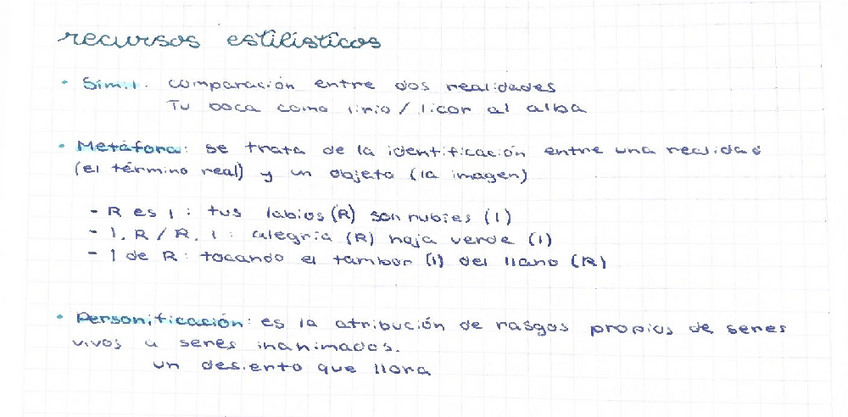 recursos estilísticos
• Símil. comparación entre dos realidades
Tu boca como lirio / licor al alba
• Metáfora: se trata de la identificación entre una realidad
(el término real) y un objeto (la imagen)
- R es I : tus labios (R) son rubíes (I)
- I, R / R, I : alegría (R) hoja verde (I)
- I de R: tocando el tambor (I) del llano (R)
• Personificación: es la atribución de rasgos propios de seres
vivos a seres inanimados.
un desierto que llora